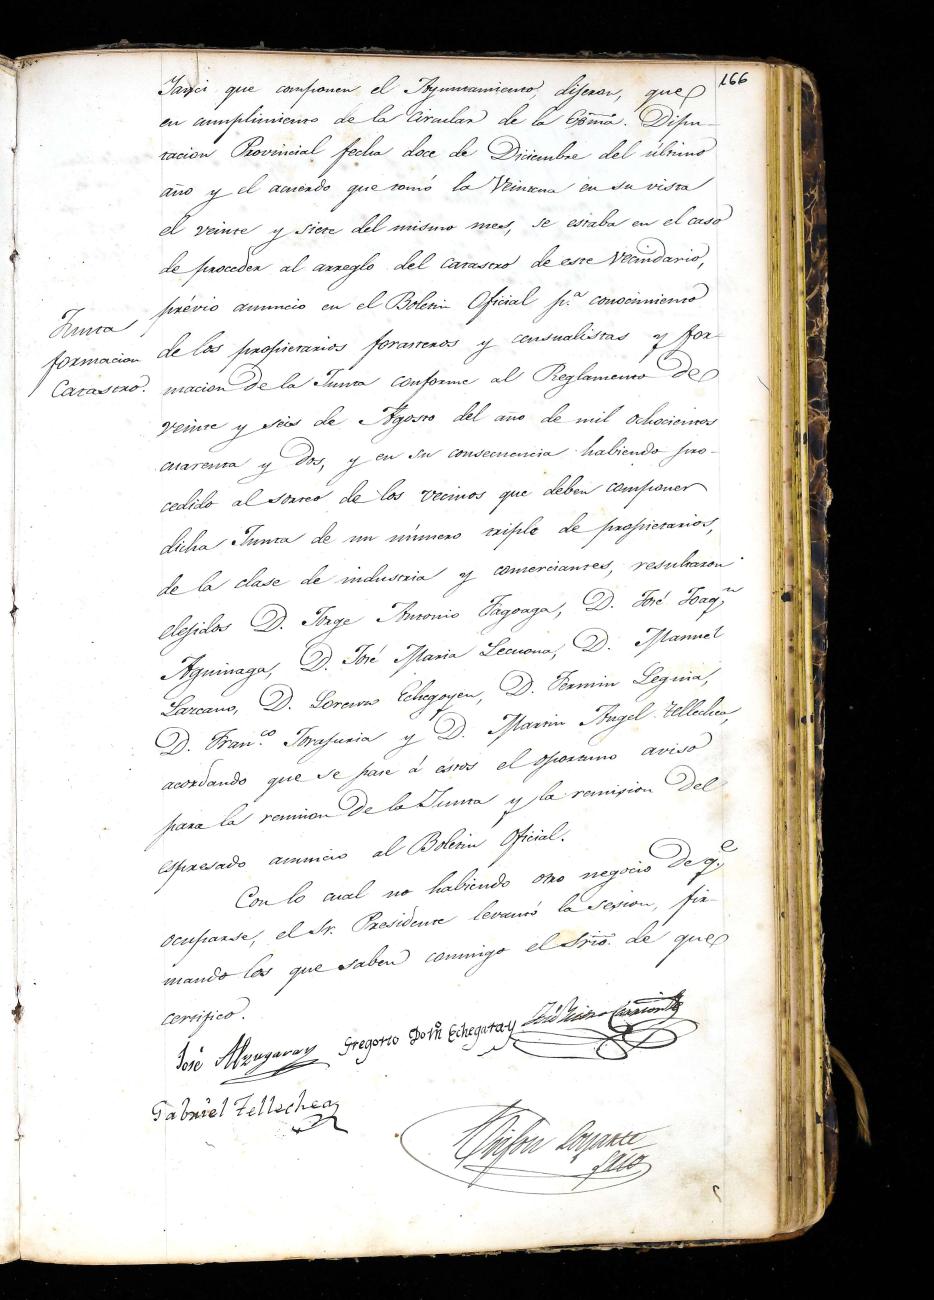 166
Yanci que componen el Ayuntamiento, dijeron, que
en cumplimiento de la Circular de la Exma. Dipu-
tacion Provincial fecha doce de Diciembre del último
año y el acuerdo que tomó la Veintena en su vista
el veinte y siete del mismo mes, se estaba en el caso
de proceder al arreglo del catastro de este vecindario,
prévio anuncio en el Boletin Oficial p.ª conocimiento
Junta
formacion
Catastro.
de los propietarios forasteros y censualistas y for-
macion de la Junta conforme al Reglamento de
veinte y seis de Agosto del año de mil ochocientos
cuarenta y dos, y en su consecuencia habiendo pro-
cedido al sorteo de los vecinos que deben componer
dicha Junta de un número triple de propietarios,
de la clase de industria y comerciantes, resultaron
elejidos D. Jorge Antonio Fagoaga, D. José Joaqn
Aguinaga, D. José Maria Lecuona, D. Manuel
Lazcano, D. Lorenzo Echegoyen, D. Fermin Leguia,
D. Fran.co Torajuria y D. Martin Angel Tellechea,
acordando que se pase á estos el oportuno aviso
para la reunion de la Junta y la remision del
espresado anuncio al Boletin Oficial.
Con lo cual no habiendo otro negocio de q.e
ocuparse, el Sr. Presidente levantó la sesion, fir-
mando los que saben conmigo el Srio. de que
certifico.
José Alzugaray Gregorio Dom Echegaray José
Gabriel Tellechea
Loyarte
Srio